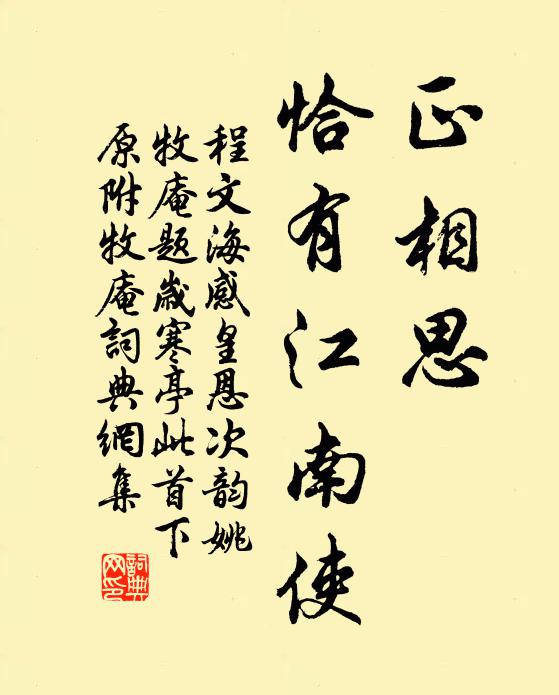 正相思
恰有江南使
程文海感皇恩次韵姚
牧庵題歲寒亭此首下
原附牧庵詞典網集
詞典
网印